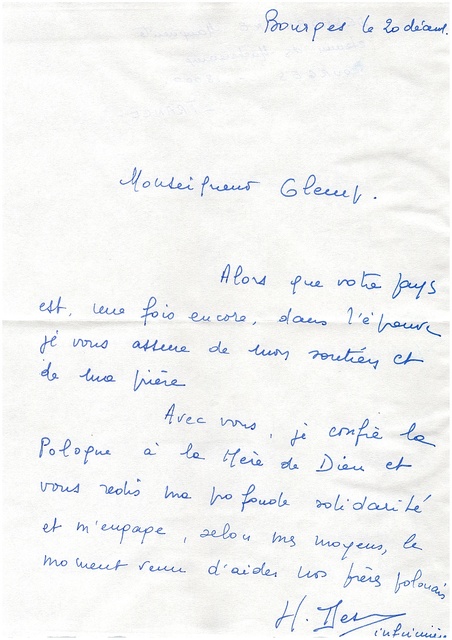 Bourges le 20 décemb.
Monseigneur Glemp.
Alors que votre pays
est, une fois encore, dans l'épreuve
je vous assure de mon soutien et
de ma prière
Avec vous, je confie la
Pologne à la Mère de Dieu et
vous redis ma profonde solidarité
et m'engage, selon mes moyens, le
moment venu d'aider nos frères polonais
H.
infirmière